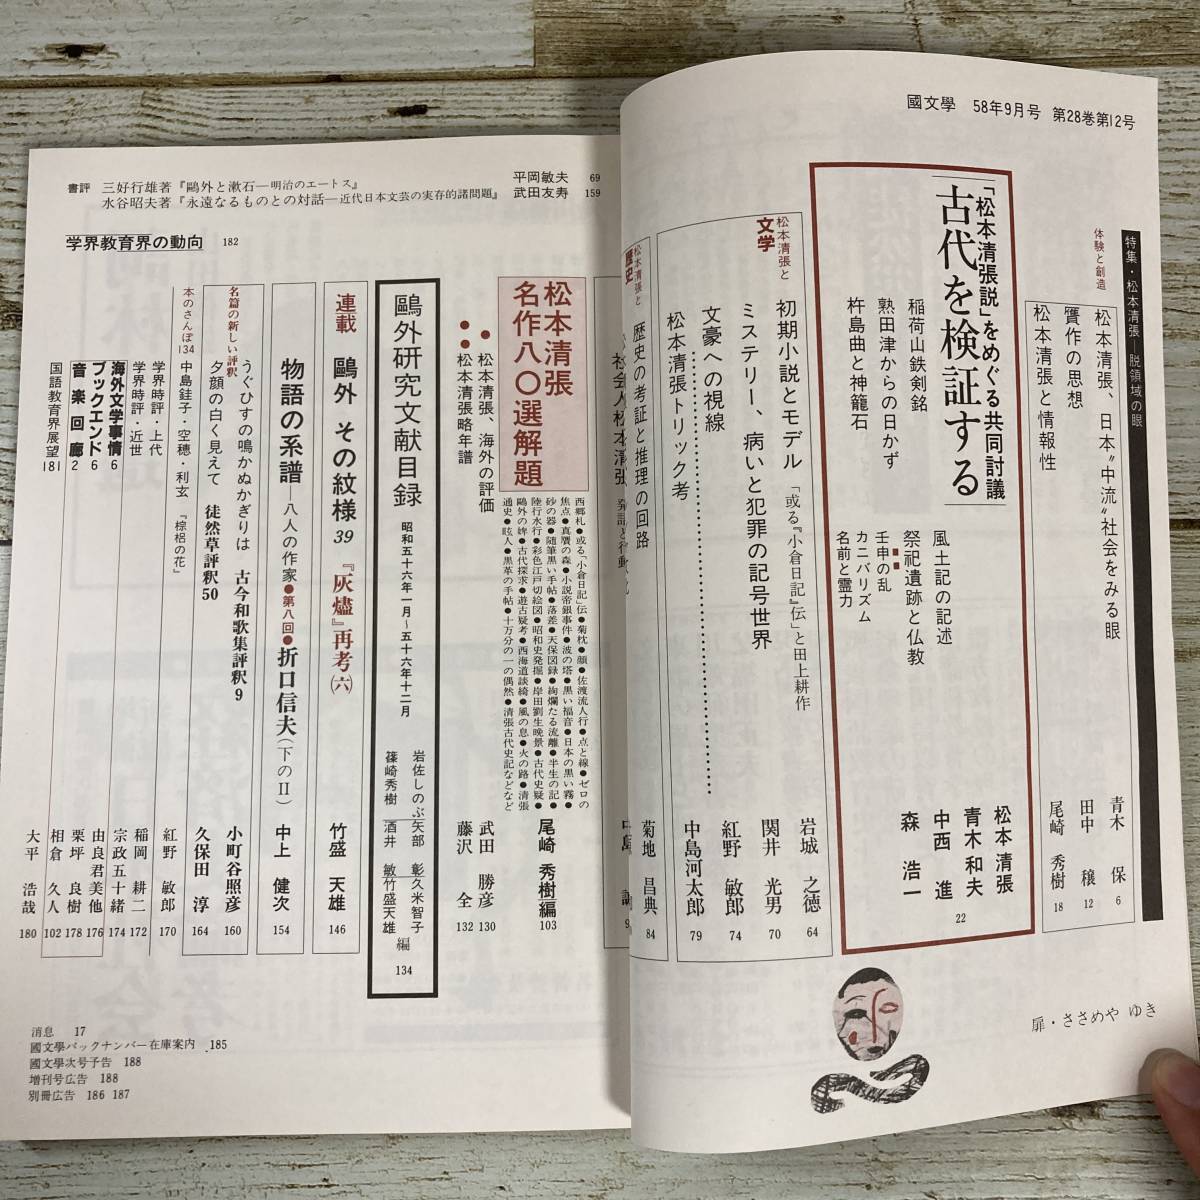 國文學 58年9月号 第28巻第12号
特集・松本清張―脱領域の眼
体験と創造
松本清張、日本〝中流〟社会をみる眼 青木 保 6
贋作の思想 田中 穣 12
松本清張と情報性 尾崎 秀樹 18
「松本清張説」をめぐる共同討議
古代を検証する
稲荷山鉄剣銘
熟田津からの日かず
杵島曲と神籠石
風土記の記述
祭祀遺跡と仏教
壬申の乱
カニバリズム
名前と霊力
松本 清張
青木 和夫
中西 進
森 浩一
22
松本清張と
文学
初期小説とモデル 「或る『小倉日記』伝」と田上耕作 岩城 之徳 64
ミステリー、病いと犯罪の記号世界 関井 光男 70
文豪への視線 紅野 敏郎 74
松本清張トリック考 中島河太郎 79
松本清張と
歴史
歴史の考証と推理の回路 菊地 昌典 84
社会人松本清張
松本清張
名作八〇選解題
西郷札●或る「小倉日記」伝●菊枕●顔●佐渡流人行●点と線●ゼロの
焦点●真贋の森●小説帝銀事件●波の塔●黒い福音●日本の黒い霧●
砂の器●随筆黒い手帖●落差●天保図録●絢爛たる流離●半生の記●
陸行水行●彩色江戸切絵図●昭和史発掘●岸田劉生晩景●古代史疑●
鷗外の婢●古代探求●遊古疑考●西海道談綺●風の息●火の路●清張
通史●眩人●黒革の手帖●十万分の一の偶然●清張古代史記などなど
尾崎 秀樹編 103
●松本清張、海外の評価 武田 勝彦 130
●松本清張略年譜 藤沢 全 132
鷗外研究文献目録 昭和五十六年一月〜五十六年十二月
岩佐しのぶ 矢部 彰 久米智子
篠崎秀樹 酒井 敏 竹盛天雄
編 134
連載 鷗外 その紋様 39 『灰燼』再考㈥ 竹盛 天雄 146
物語の系譜―八人の作家●第八回●折口信夫(下のⅡ) 中上 健次 154
名篇の新しい評釈
うぐひすの鳴かぬかぎりは 古今和歌集評釈9 小町谷照彦 160
夕顔の白く見えて 徒然草評釈50 久保田 淳 164
本のさんぽ134
中島鉒子・空穂・利玄 『棕梠の花』 紅野 敏郎 170
学界時評・上代 稲岡 耕二 172
学界時評・近世 宗政五十緒 174
海外文学事情6 由良君美他 176
ブックエンド6 栗坪 良樹 178
音楽回廊2 相倉 久人 102
国語教育界展望181 大平 浩哉 180
書評 三好行雄著『鷗外と漱石―明治のエートス』 平岡敏夫 69
水谷昭夫著『永遠なるものとの対話―近代日本文芸の実存的諸問題』 武田友寿 159
学界教育界の動向 182
消息 17
國文學バックナンバー在庫案内 185
國文學次号予告 188
増刊号広告 188
別冊広告 186 187
扉・ささめや ゆき